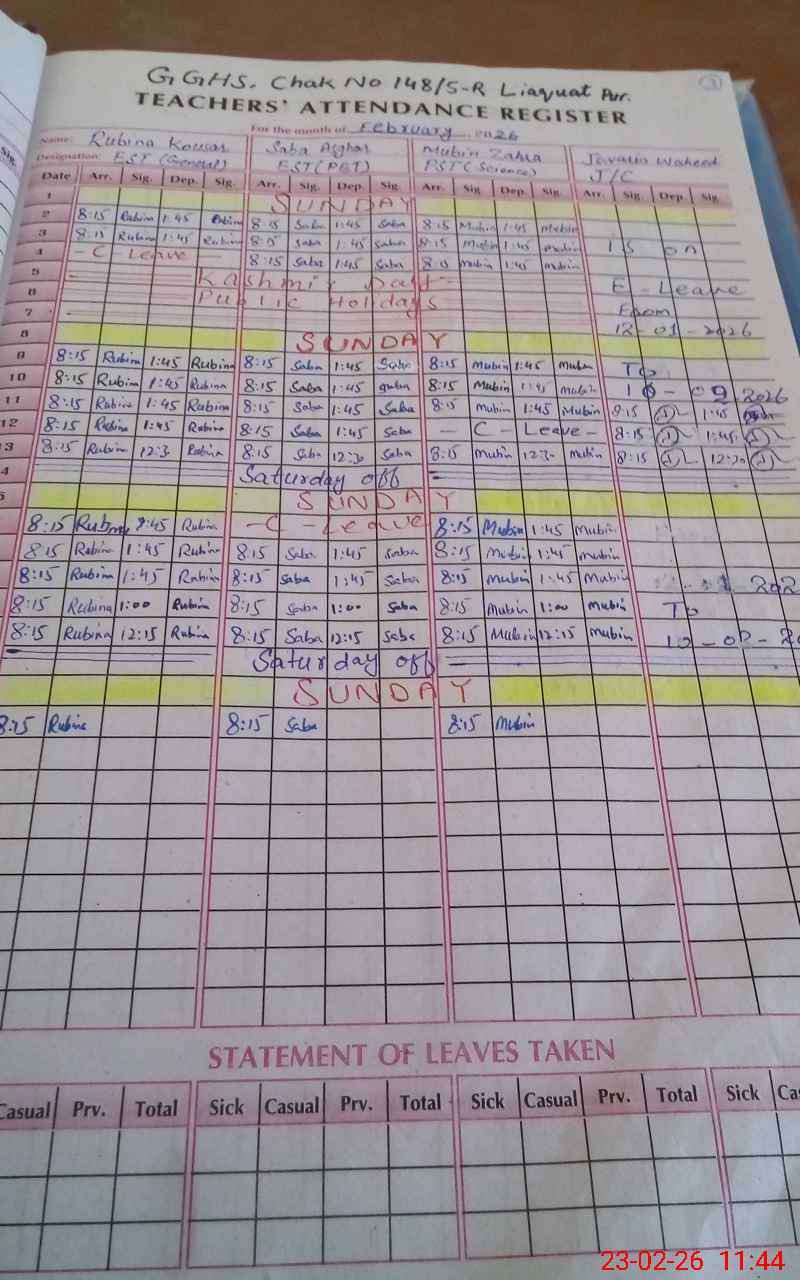 G GHS. Chak No 148/5-R Liaquat Pur.
TEACHERS' ATTENDANCE REGISTER
For the month of February 2026
Name: Rubina Kousar Saba Asghar Mubin Zahra Javaria Waheed
Designation: EST (General) EST (PET) PST (Science) J/C
Date Arr. Sig. Dep. Sig. Arr. Sig. Dep. Sig. Arr. Sig. Dep. Sig. Arr. Sig. Dep. Sig.
1 SUNDAY
2 8:15 Rubina 1:45 Rubina 8:15 Saba 1:45 Saba 8:15 Mubin 1:45 Mubin
3 8:15 Rubina 1:45 Rubina 8:15 Saba 1:45 Saba 8:15 Mubin 1:45 Mubin is on
4 - C - Leave 8:15 Saba 1:45 Saba 8:15 Mubin 1:45 Mubin
5 Kashmir Day E - Leave
6 Public Holidays From
7 12-01-2026
8 SUNDAY
9 8:15 Rubina 1:45 Rubina 8:15 Saba 1:45 Saba 8:15 Mubin 1:45 Mubin To
10 8:15 Rubina 1:45 Rubina 8:15 Saba 1:45 8:15 Mubin 1:45 Mubin 2026
11 8:15 Rubina 1:45 Rubina 8:15 Saba 1:45 Saba 8:15 Mubin 1:45 Mubin 8:15 1:45
12 8:15 Rubina 1:45 Rubina 8:15 Saba 1:45 Saba - C - Leave - 8:15 1:45
13 8:15 Rubina 12:30 Rubina 8:15 Saba 12:30 Saba 8:15 Mubin 12:30 Mubin 8:15 12:30
4 Saturday off
5 SUNDAY
8:15 Rubina 1:45 Rubina - C - Leave 8:15 Mubin 1:45 Mubin
8:15 Rubina 1:45 Rubina 8:15 Saba 1:45 Saba 8:15 Mubin 1:45 Mubin
8:15 Rubina 1:45 Rubina 8:15 Saba 1:45 Saba 8:15 Mubin 1:45 Mubin
8:15 Rubina 1:00 Rubina 8:15 Saba 1:00 Saba 8:15 Mubin 1:00 Mubin To
8:15 Rubina 12:15 Rubina 8:15 Saba 12:15 Saba 8:15 Mubin 12:15 Mubin
Saturday off
SUNDAY
8:15 Rubina 8:15 Saba 8:15 Mubin
STATEMENT OF LEAVES TAKEN
Casual Prv. Total Sick Casual Prv. Total Sick Casual Prv. Total Sick Ca
23-02-26 11:44